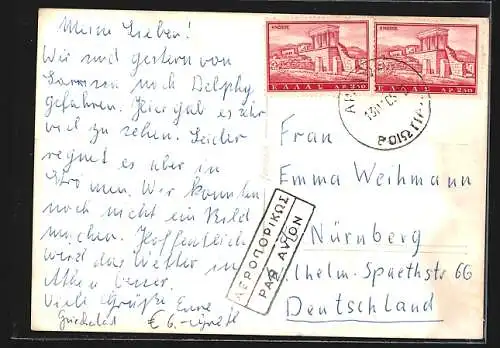 Meine Lieben!
Wir sind gestern von
nach Delphy
gefahren. Hier gab es sehr
viel zu sehen. Leider
regnet es aber in
Strömen. Wir konnten
noch nicht ein Bild
machen. Hoffentlich
wird das Wetter in
Athen besser.
Viele Grüße Eure
ΚΝΩΣΟΣ
ΕΛΛΑΣ ΔΡ. 2.50
ΚΝΩΣΟΣ
ΕΛΛΑΣ ΔΡ. 2.50
Frau
Emma Weihmann
Nürnberg
Wilhelm-Spaethstr 66
Deutschland
ΑΕΡΟΠΟΡΙΚΩΣ
PAR AVION